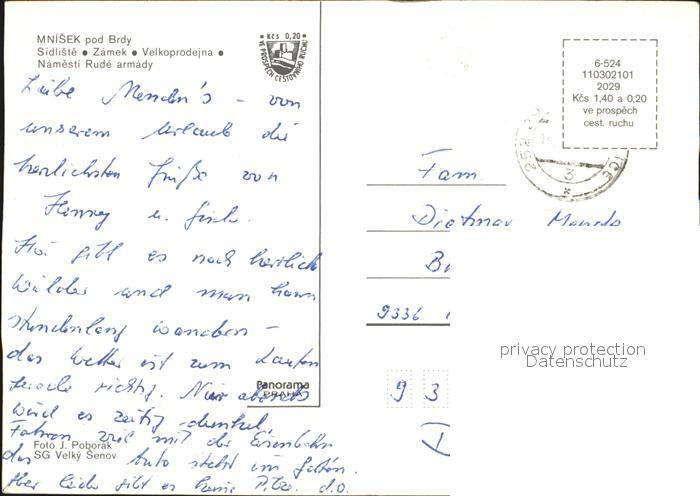 MNÍŠEK pod Brdy
Sídliště ● Zámek ● Velkoprodejna ●
Náměstí Rudé armády
Kčs 0,20
VE PROSPĚCH CESTOVNÍHO RUCHU
6-524
110302101
2029
Kčs 1,40 a 0,20
ve prospěch
cest. ruchu
252
3
Liebe – von
unserem Urlaub die
herzlichsten Grüße von
Henny u.
Hier gibt es noch herrlich
Wälder und man kann
stundenlang wandern –
das Wetter ist zum Laufen
gerade richtig. Nur abends
wird es zeitig dunkel.
Fahren viel mit der Eisenbahn
das Auto steht im
Aber leider gibt es keine Pilze. d.o.
Fam.
Dietmar
9336
9 3
Panorama
Foto J. Poborák
SG Velký Šenov
privacy protection
Datenschutz